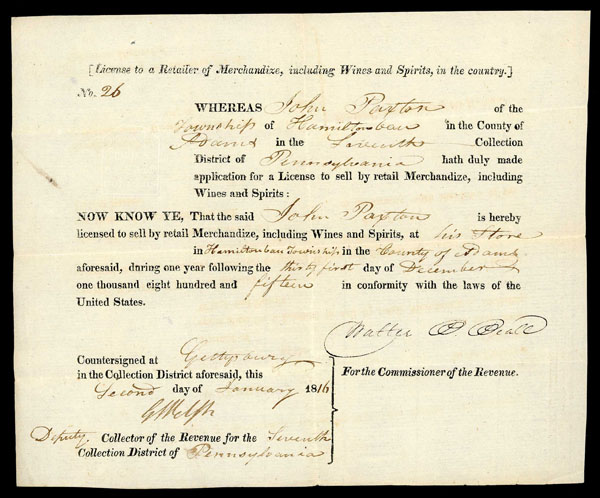 [License to a Retailer of Merchandize, including Wines and Spirits, in the country.]
No. 26
WHEREAS John Paxton of the
Township of Hamiltonban in the County of
Adams in the Seventh Collection
District of Pennsylvania hath duly made
application for a License to sell by retail Merchandize, including
Wines and Spirits:
NOW KNOW YE, That the said John Paxton is hereby
licensed to sell by retail Merchandize, including Wines and Spirits, at his Store
in Hamiltonban Township in the County of Adams
aforesaid, during one year following the thirty first day of December
one thousand eight hundred and fifteen in conformity with the laws of the
United States.
Walter
Countersigned at Gettysburg
in the Collection District aforesaid, this
Second day of January 1816
For the Commissioner of the Revenue.
Deputy Collector of the Revenue for the Seventh
Collection District of Pennsylvania